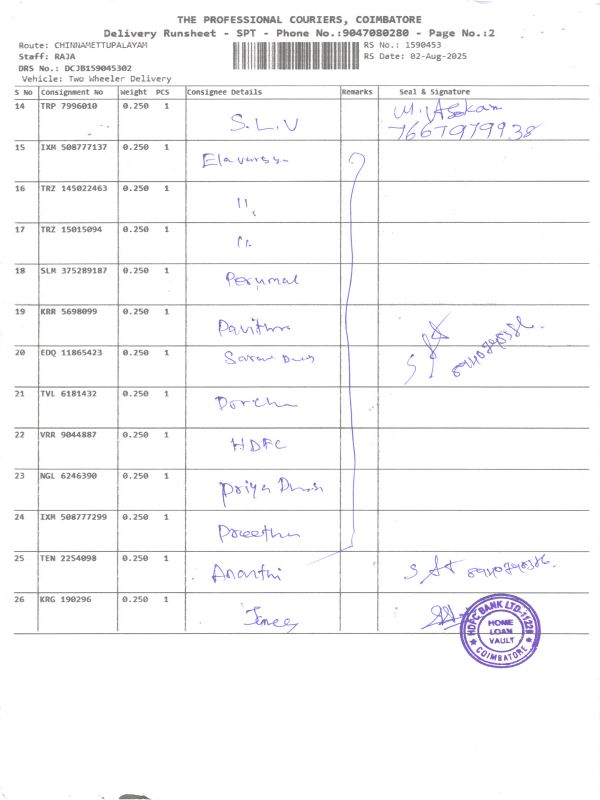 THE PROFESSIONAL COURIERS, COIMBATORE
Delivery Runsheet - SPT - Phone No.:9047080280 - Page No.:2
Route: CHINNAMETTUPALAYAM RS No.: 1590453
Staff: RAJA RS Date: 02-Aug-2025
DRS No.: DCJB159045302
Vehicle: Two Wheeler Delivery
S No Consignment No Weight PCS Consignee Details Remarks Seal & Signature
14 TRP 7996010 0.250 1 S.L.V
7667979938
15 IXM 508777137 0.250 1
16 TRZ 145022463 0.250 1 11
17 TRZ 15015094 0.250 1 11
18 SLM 375289187 0.250 1 Perumal
19 KRR 5698099 0.250 1 Pavithra
20 EDQ 11865423 0.250 1
21 TVL 6181432 0.250 1
22 VRR 9044887 0.250 1 HDFC
23 NGL 6246390 0.250 1 Priya
24 IXM 508777299 0.250 1 Preetha
25 TEN 2254098 0.250 1 Ananthi
26 KRG 190296 0.250 1
HDFC BANK LTD-11228
HOME
LOAN
VAULT
COIMBATORE